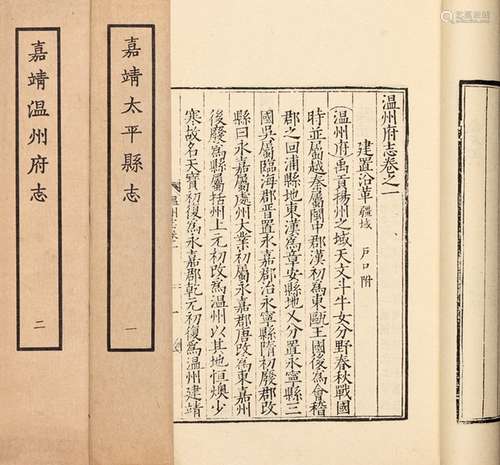 温州府志卷之一
建置沿革 疆域 戶口附
溫州府禹貢揚州之域天文斗牛女分野春秋戰國
時並屬越秦屬閩中郡漢初為東甌王國後為會稽
郡之回浦縣地東漢為章安縣地又分置永寧縣三
國吳屬臨海郡晉置永嘉郡治永寧縣隋初廢郡改
縣曰永嘉屬處州大業初屬永嘉郡唐改為東嘉州
後廢為縣屬括州上元初改為溫州以其地恒燠少
寒故名天寶初復為永嘉郡乾元初復為溫州建靖
嘉靖太平縣志
一
嘉靖温州府志
二